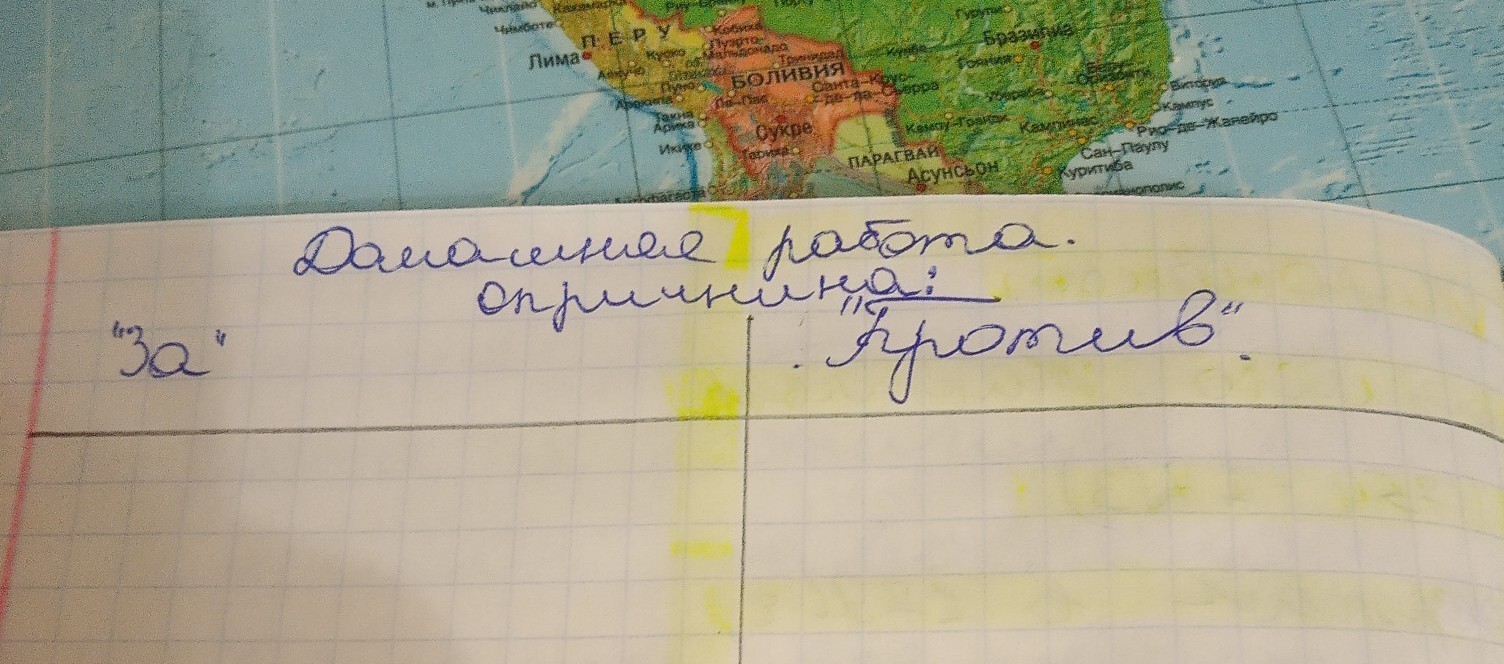 Перу
Лима
Куско
БОЛИВИЯ
Тринидад
Санта-Крус-
де-ла-Сьерра
Ла-Пас
Сукре
Тариха
Арика
Икике
ПАРАГВАЙ
Асунсьон
Бразилиа
Гояния
Куяба
Кампу-Гранди
Кампинас
Витория
Кампус
Рио-де-Жанейро
Сан-Паулу
Куритиба
Домашняя работа.
опричнина:
"За" "Против".